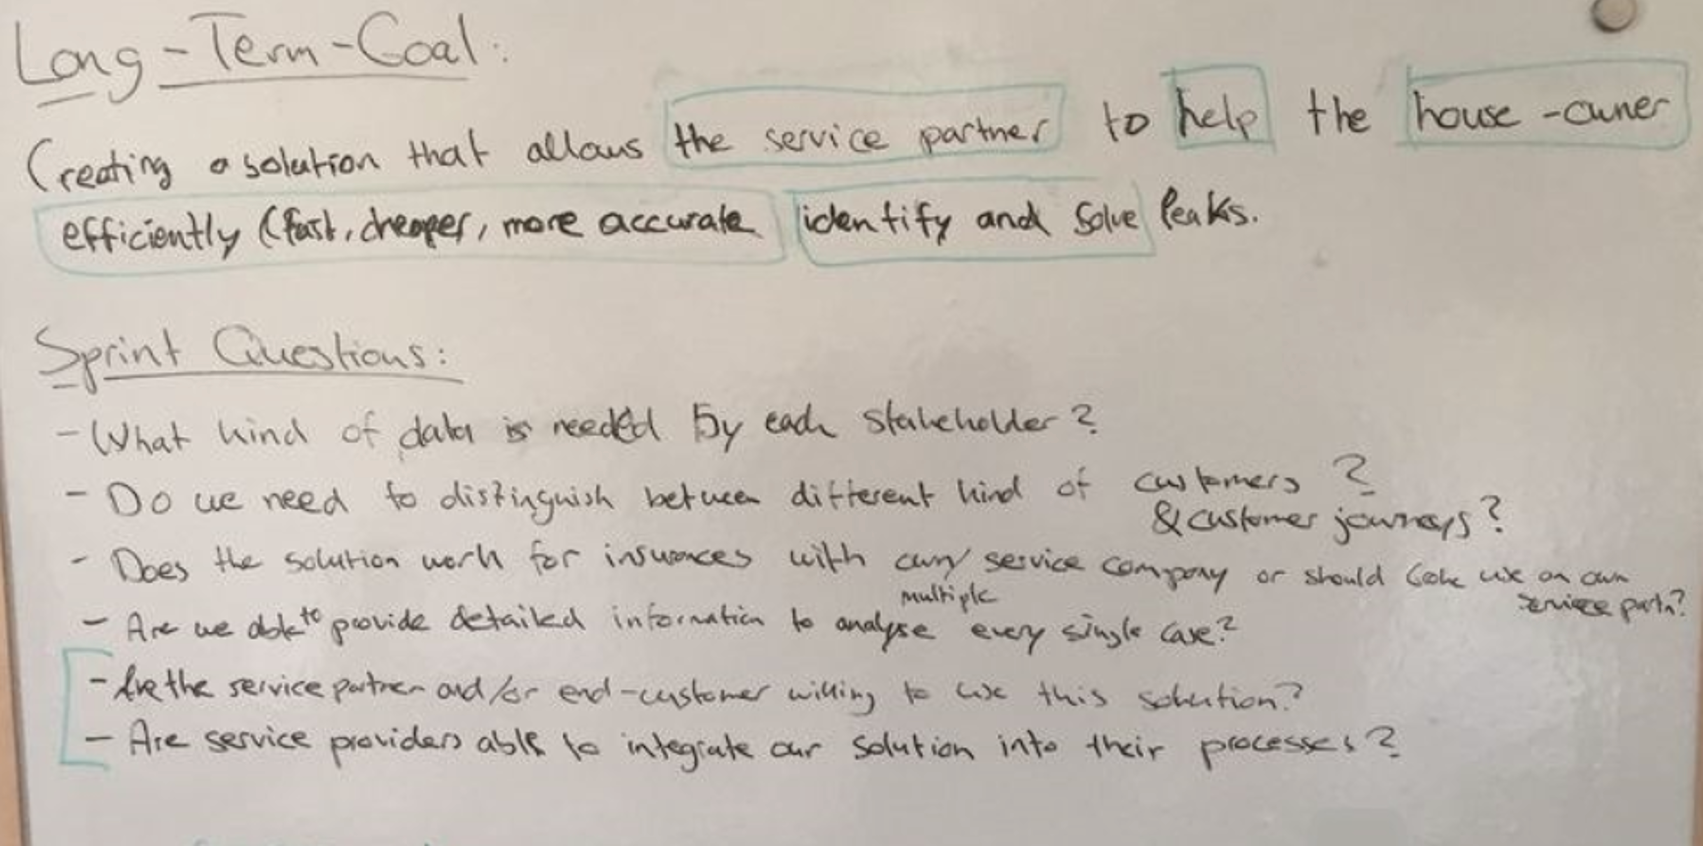 Long-Term-Goal:
Creating a solution that allows the service partner to help the house-owner
efficiently (fast, cheaper, more accurate identify and solve leaks.
Sprint Questions:
- What kind of data is needed by each stakeholder?
- Do we need to distinguish between different kind of customers?
& customer journeys?
- Does the solution work for insurances with any service company or should use an own
multiple
service partn?
- Are we able to provide detailed information to analyse every single case?
- Are the service partner and/or end-customer willing to use this solution?
- Are service providers able to integrate our solution into their processes?